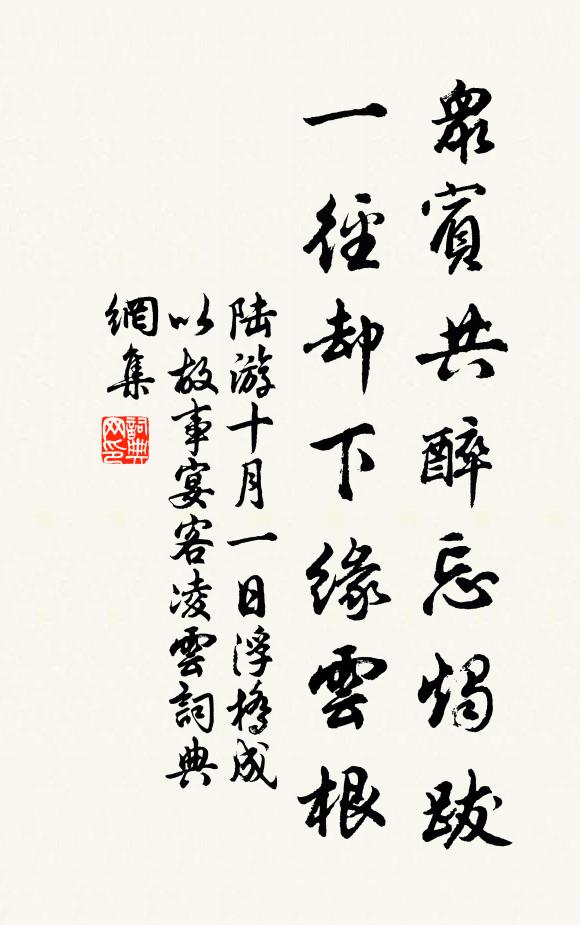 眾賓共醉忘燭跋
一徑却下緣雲根
陆游十月一日浮橋成
以故事宴客凌雲詞典
網集
詞典网印